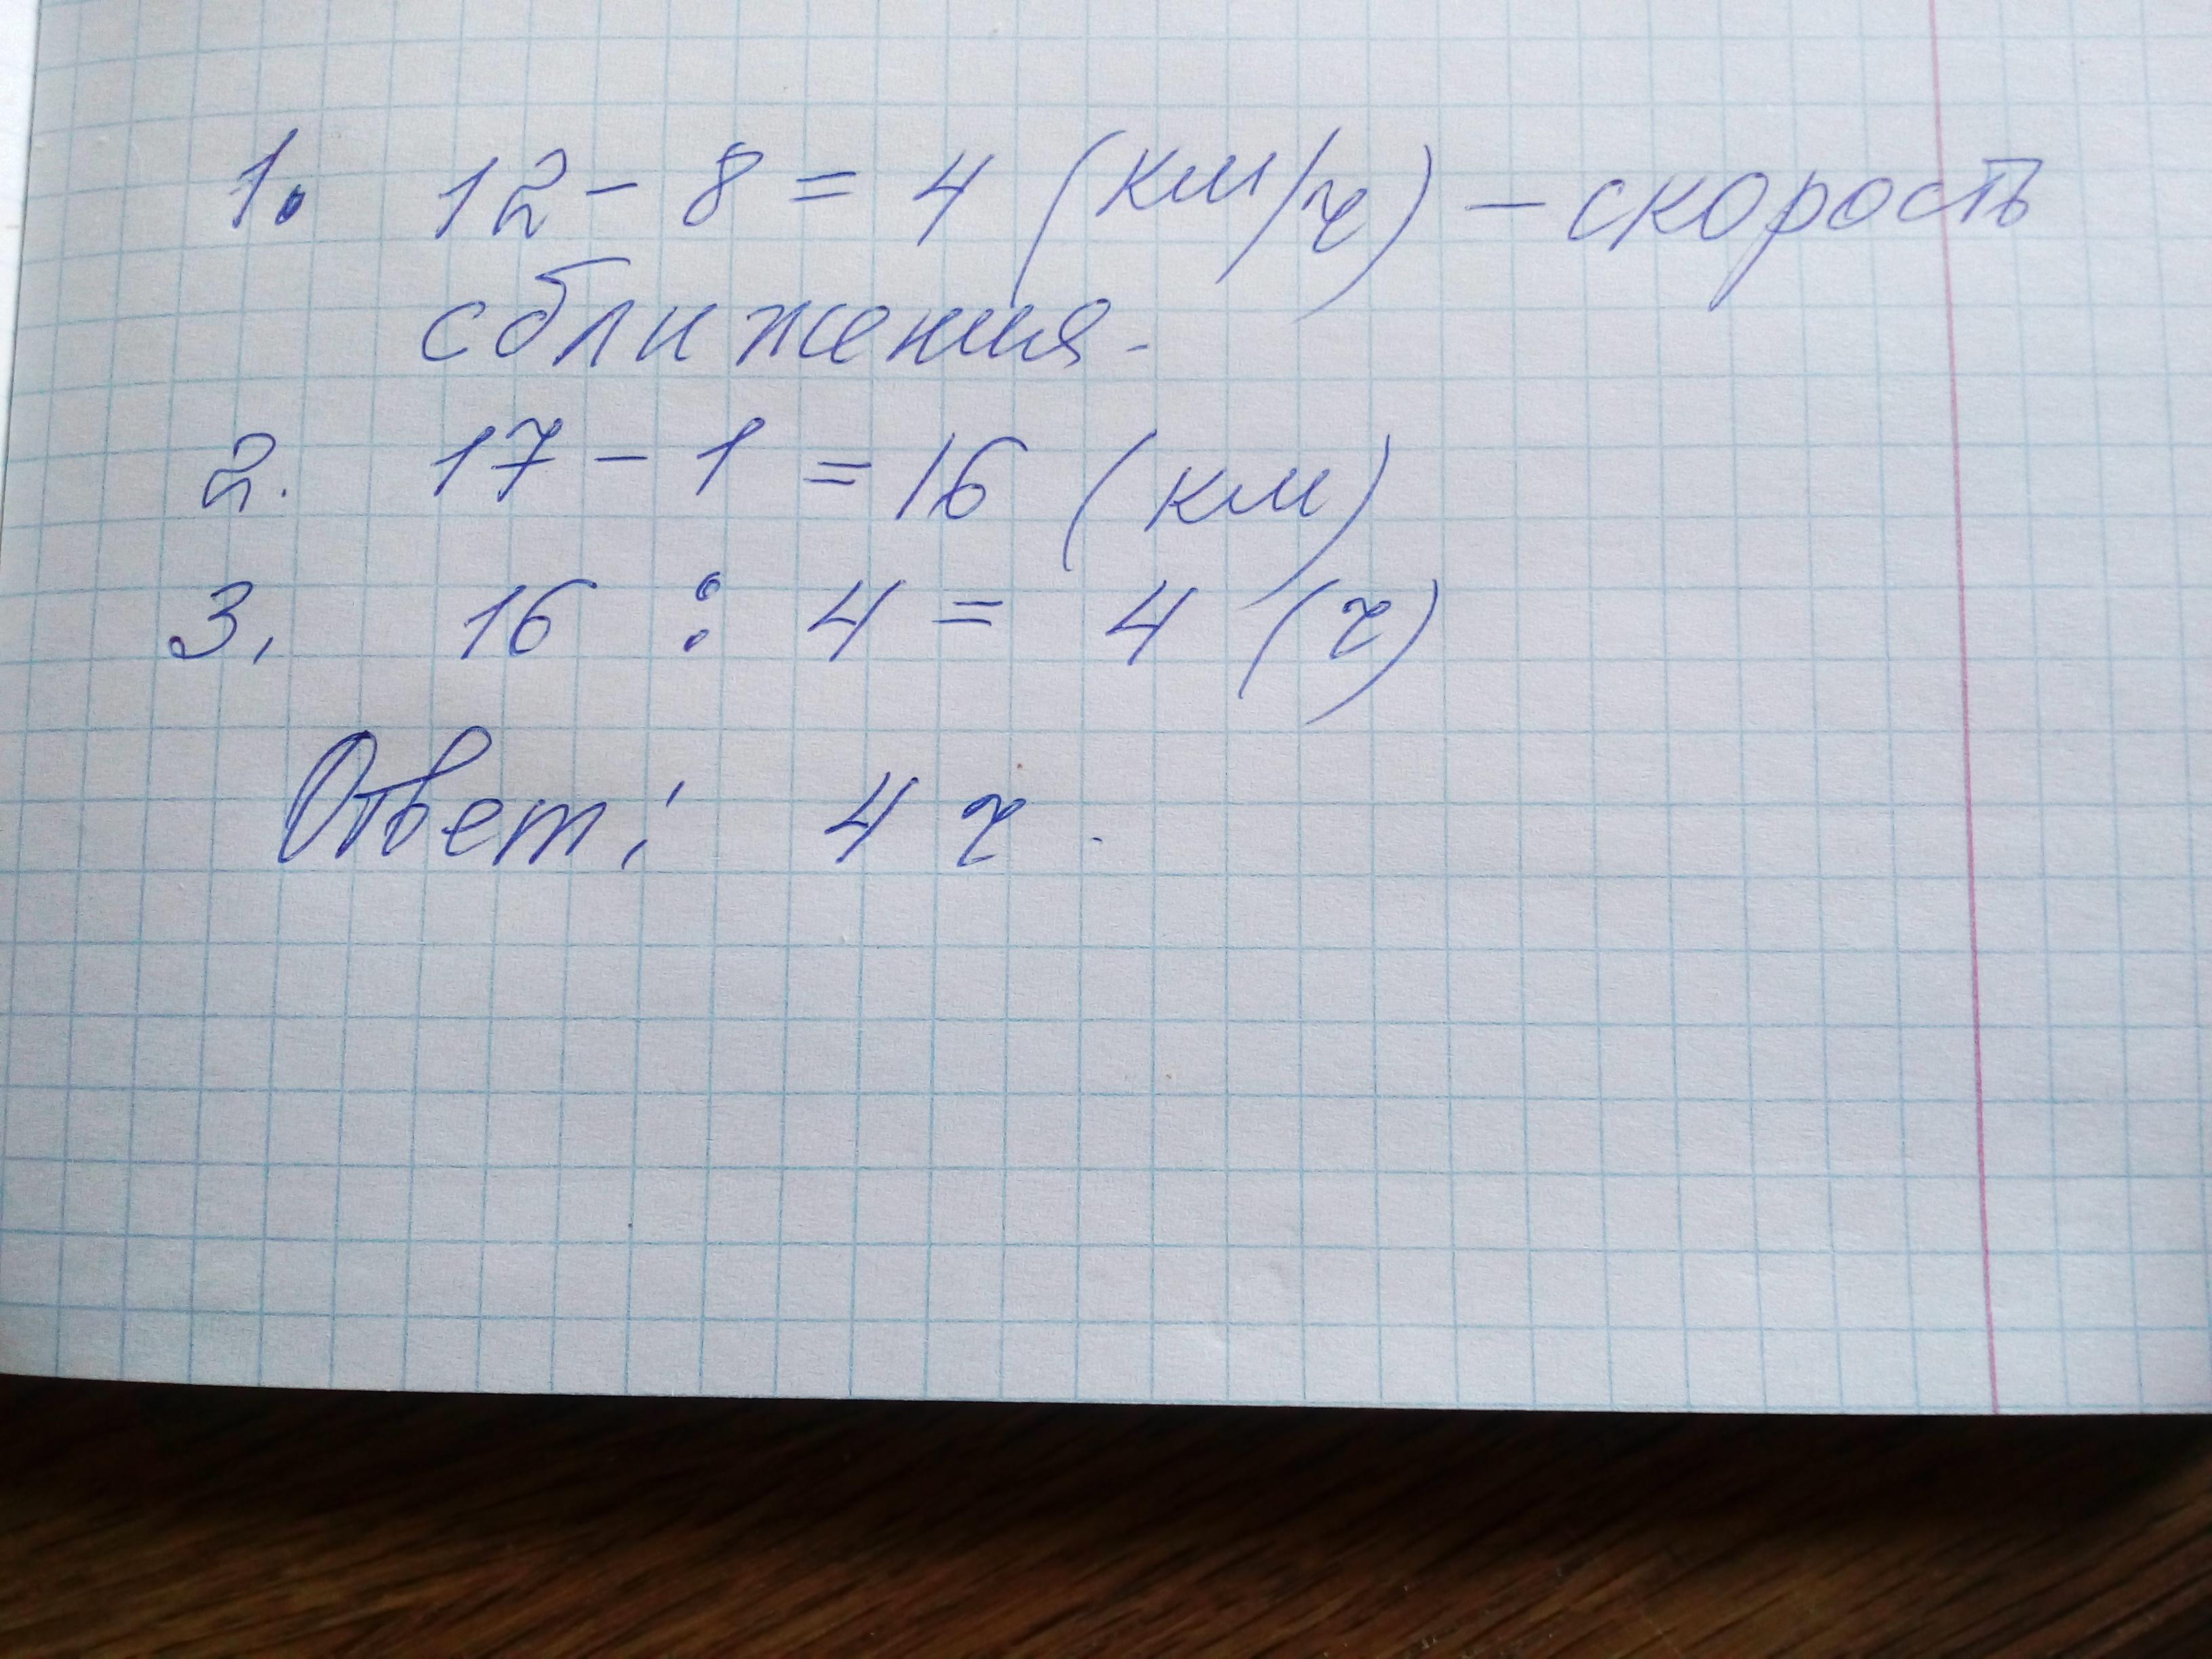 1. 12 - 8 = 4 (км/ч) - скорость
сближения.
2. 17 - 1 = 16 (км)
3. 16 : 4 = 4 (ч)
Ответ: 4 ч.